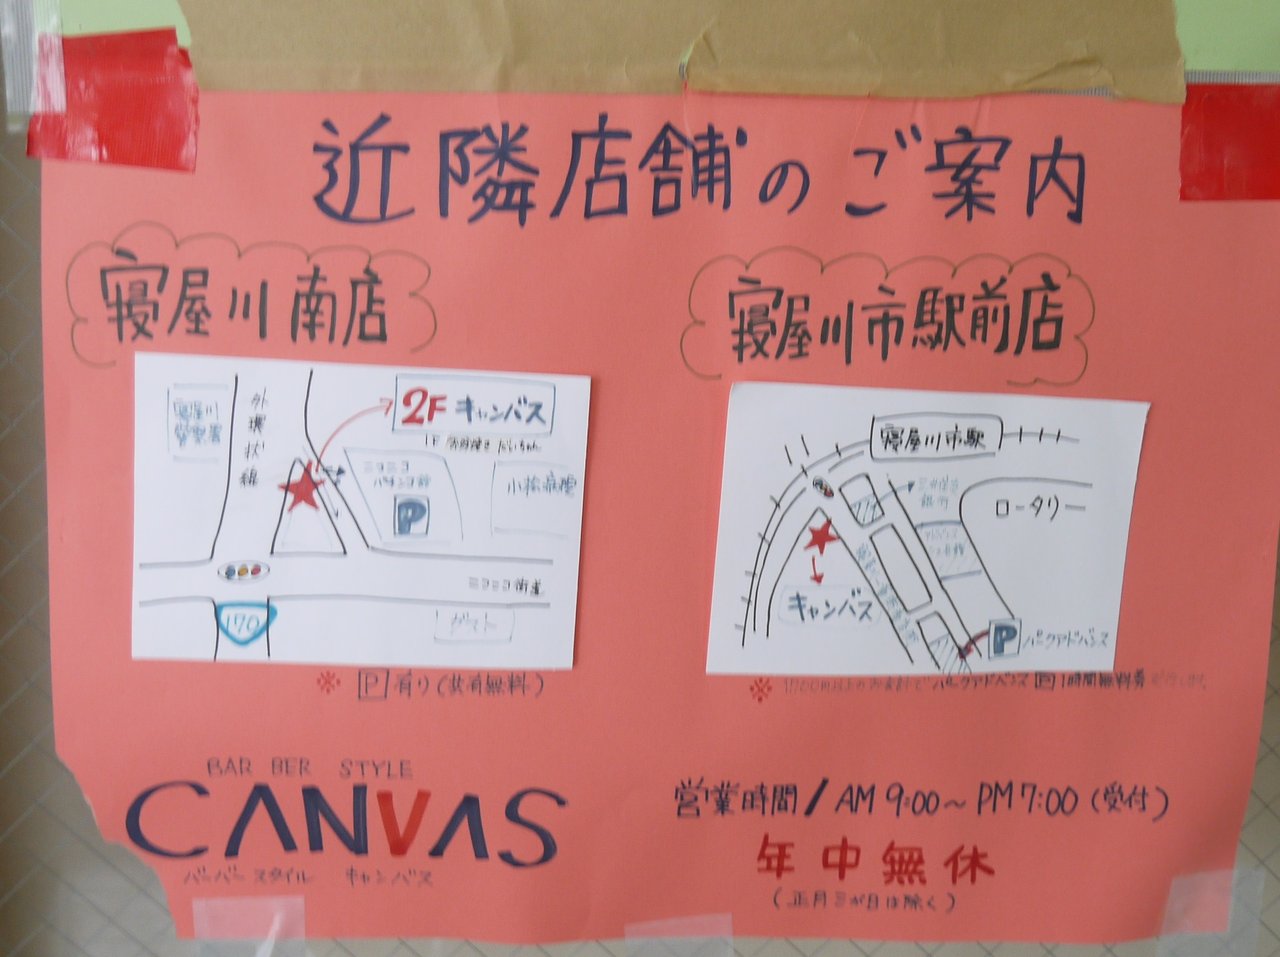 近隣店舗のご案内
寝屋川南店
寝屋川
警察署
外環状線
2F キャンバス
1F
ニコニコ
パチンコ
P
小松病院
170
ニコニコ街道
ガスト
※ P 有り(共有無料)
寝屋川市駅前店
寝屋川市駅
ロータリー
銀行
キャンバス
P パークアドバンス
※ 1700円以上のお会計で パークアドバンス P 1時間無料券
BAR BER STYLE
CANVAS
バーバー スタイル キャンバス
営業時間/AM 9:00~PM 7:00(受付)
年中無休
(正月三が日は除く)